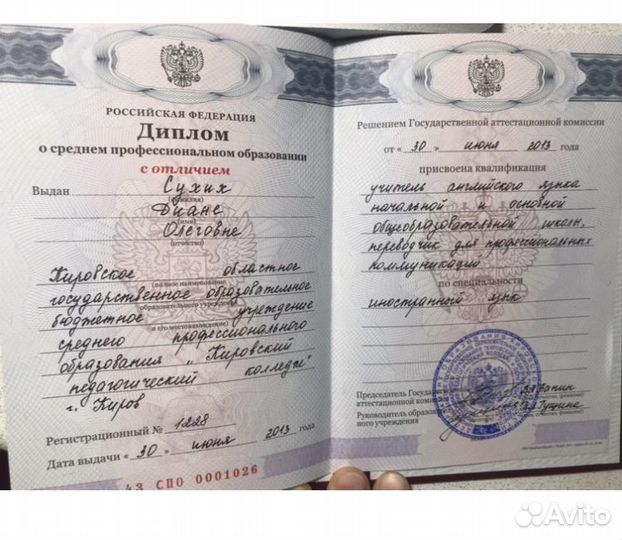 РОССИЙСКАЯ ФЕДЕРАЦИЯ
Диплом
о среднем профессиональном образовании
с отличием
Выдан Сухих
(фамилия)
Диане
(имя)
Олеговне
(отчество)
Кировское областное
(полное наименование
государственное образовательное
образовательного учреждения
бюджетное учреждение
и его местонахождение)
среднего профессионального
образования "Кировский
педагогический колледж"
г. Киров
Регистрационный № 1228
Дата выдачи « 30 » июня 2013 года
43 СПО 0001026
Решением Государственной аттестационной комиссии
от « 30 » июня 2013 года
присвоена квалификация
учитель английского языка
начальной и основной
общеобразовательной школы,
переводчик для профессиональных
коммуникаций
по специальности
иностранный язык
Председатель Государственной
аттестационной комиссии
Руководитель образовательного учреждения
Avito